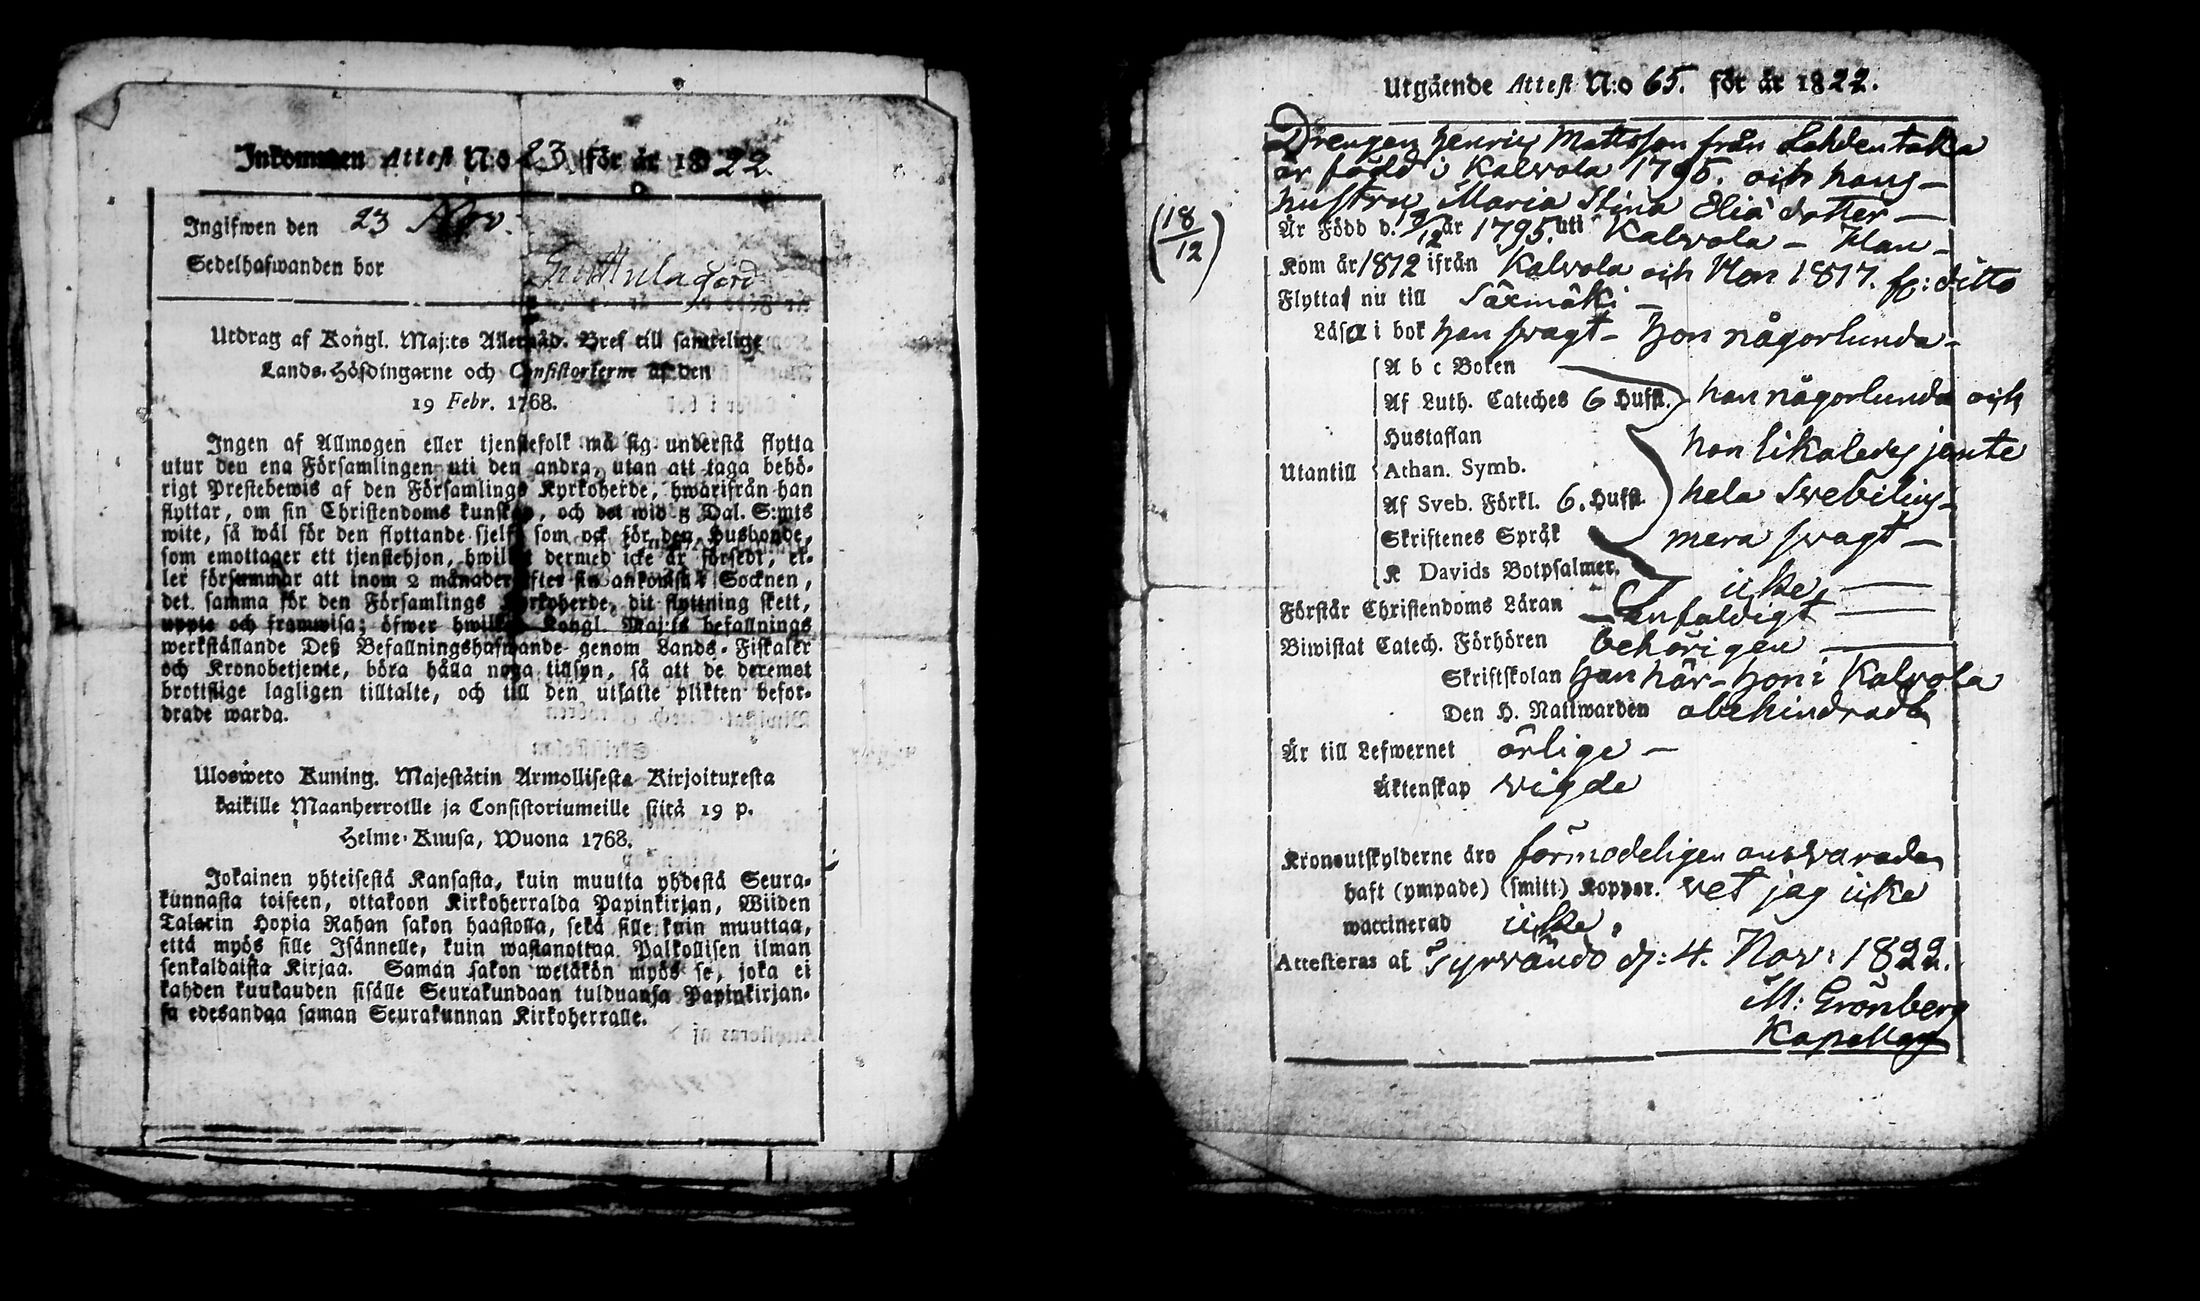 Inkommen Attest N:o 23 för år 1822.
Ingifwen den 23 Nov.
Sedelhafwanden bor
Utdrag af Kongl. Maj:ts Allernåd. Bref till samtelige
Lands-Höfdingarne och Consistorierne af den
19 Febr. 1768.
Ingen af Allmogen eller tjenstefolk må sig understå flytta
utur den ena Församlingen uti den andra, utan att taga behö-
rigt Prestebewis af den Församlings Kyrkoherde, hwarifrån han
flyttar, om sin Christendoms kunskap, och det wid 5 Dal. S:mts
wite, så wäl för den flyttande sjelf, som ock för den Husbonde,
som emottager ett tjenstehjon, hwilket dermed icke är försedt, el-
ler försummar att inom 2 månader efter sin ankomst i Socknen,
det samma för den Församlings Kyrkoherde, dit flyttning skett,
uppte och framwisa; öfwer hwilken Kongl. Maj:ts befallnings
werkställande Deß Befallningshafwande genom Lands-Fiskaler
och Kronobetjente, böra hålla noga tillsyn, så att de deremot
brottslige lagligen tilltalte, och till den utsatte plikten befor-
drade warda.
Ulosweto Kuning. Majestätin Armollisesta Kirjoituxesta
kaikille Maanherroille ja Consistoriumeille siitä 19 p.
Helme-Kuusa, Wuona 1768.
Jokainen yhteisestä Kansasta, kuin muutta yhdestä Seura-
kunnasta toiseen, ottakoon Kirkoherralda Papinkirjan, Wiiden
Talarin Hopia Rahan sakon haastolla, sekä sille kuin muuttaa,
että myös sille Isännelle, kuin wastanottaa Palkollisen ilman
senkaldaista Kirjaa. Saman sakon wetäkön myös se, joka ei
kahden kuukauden sisälle Seurakundaan tulduansa Papinkirjan-
sa edesandaa saman Seurakunnan Kirkoherralle.
Utgående Attest N:o 65. för år 1822.
Drengen Henric Mattsson från Lahdentaka
är född i Kalvola 1795. och hans
hustru Maria Stina Eliä dotter
(18/12)
Är Född d. 18/12 år 1795. uti Kalvola - Han -
Kom år 1812 ifrån Kalvola och Hon 1817. fr: ditto
Flytta nu till Säxmäki
Läsa i bok han svagt - hon någorlunda -
A b c Boken
Af Luth. Cateches 6 Hufst. han någorlunda och
Hustaflan hon likaledes jemte
Utantill Athan. Symb.
Af Sveb. Förkl. 6. Hufst. hela Svebilius
Skriftenes Språk mera svagt
K Davids Botpsalmer. icke
Förstår Christendoms Läran enfaldigt
Biwistat Catech. Förhören behörigen
Skriftskolan han här - hon i Kalvola
Den H. Nattwarden obehindrade
Är till Lefwernet ärlige
Äktenskap vigde
Kronoutskylderne äro förmodeligen answarade
haft (ympade) (smitt.) Koppor. vet jag icke
waccinerad icke.
Attesteras af Tyrvändö d: 4. Nov: 1822.
M: Grönberg
Kapellan